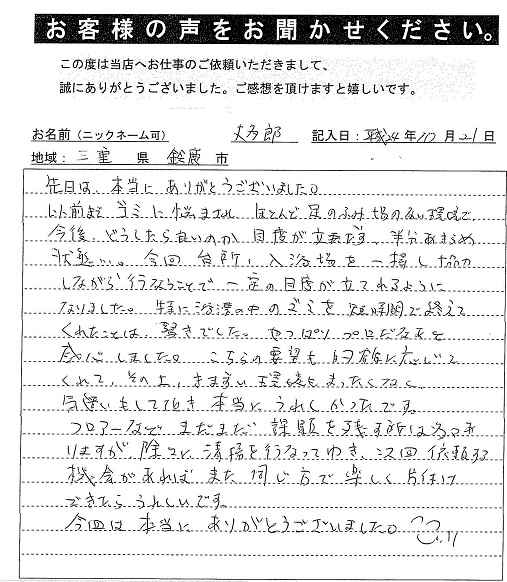 お客様の声をお聞かせください。
この度は当店へお仕事のご依頼いただきまして、
誠にありがとうございました。ご感想を頂けますと嬉しいです。
お名前（ニックネーム可） 太郎 記入日：平成24年10月21日
地域： 三重 県 鈴鹿 市
先日は、本当にありがとうございました。
以前よりゴミに悩まされ ほとんど足のふみ場のない環境で
今後、どうしたら良いのか 目度が立たず、半分あきらめ
状態…。今回 台所、入浴場を一掃し協力
しながら行なうことで 一定の目度が立てれるように
なりました。特に浴漕の中のゴミを短時間で終えて
くれたことは、驚きでした。やっぱりプロだなぁと
感心しました。こちらの要望も的確に応じて
くれて、その上、きまずい環境もまったくなく、
気遣いもして頂き 本当にうれしかったです。
フロアーなど まだまだ 課題を残す所はあ
りますが 除々に清掃を行なってゆき、次回依頼する
機会があれば また 同じ方で楽しく片付け
できたら うれしいです。
今回は 本当に ありがとうございました。